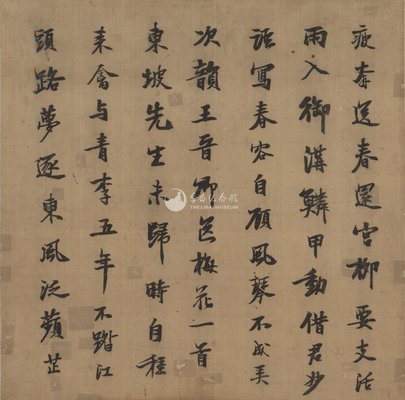 送春還宮柳要支活
雨入御溝鱗甲動借君妙
語寫春容自顧風琴不成弄
次韻王晉卿送梅花一首
東坡先生未歸時自種
来禽与青李五年不踏江
頭路夢逐東風泛蘋芷
李白纪念馆
THE LIBAI MUSEUM